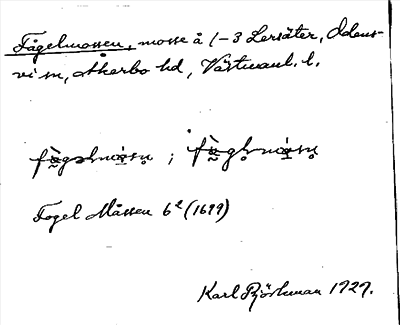 Fågelmossen, mosse å 1-3 Lersäter, Odens-
vi sn, Åkerbo hd, Västmanl. l.
;
Fogel Måssen 6² (1699)
Karl Björkman 1927.